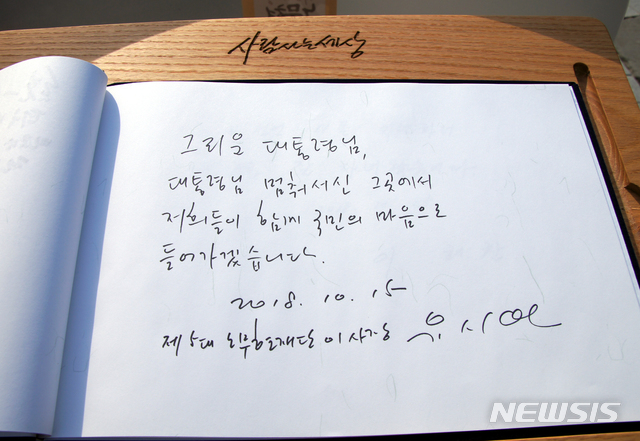 사람사는세상
그리운 대통령님,
대통령님 멈춰서신 그곳에서
저희들이 힘께 국민의 마음으로
들어가겠습니다.
2018. 10. 15
제5대 노무현재단 이사장 유시민
NEWSIS